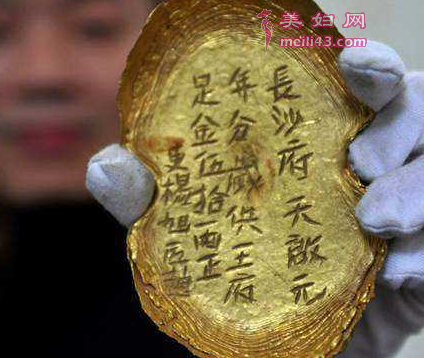 美妇网
meili43.com
長沙府天啟元
年分歲供王府
足金伍拾兩正
吏楊旭匠